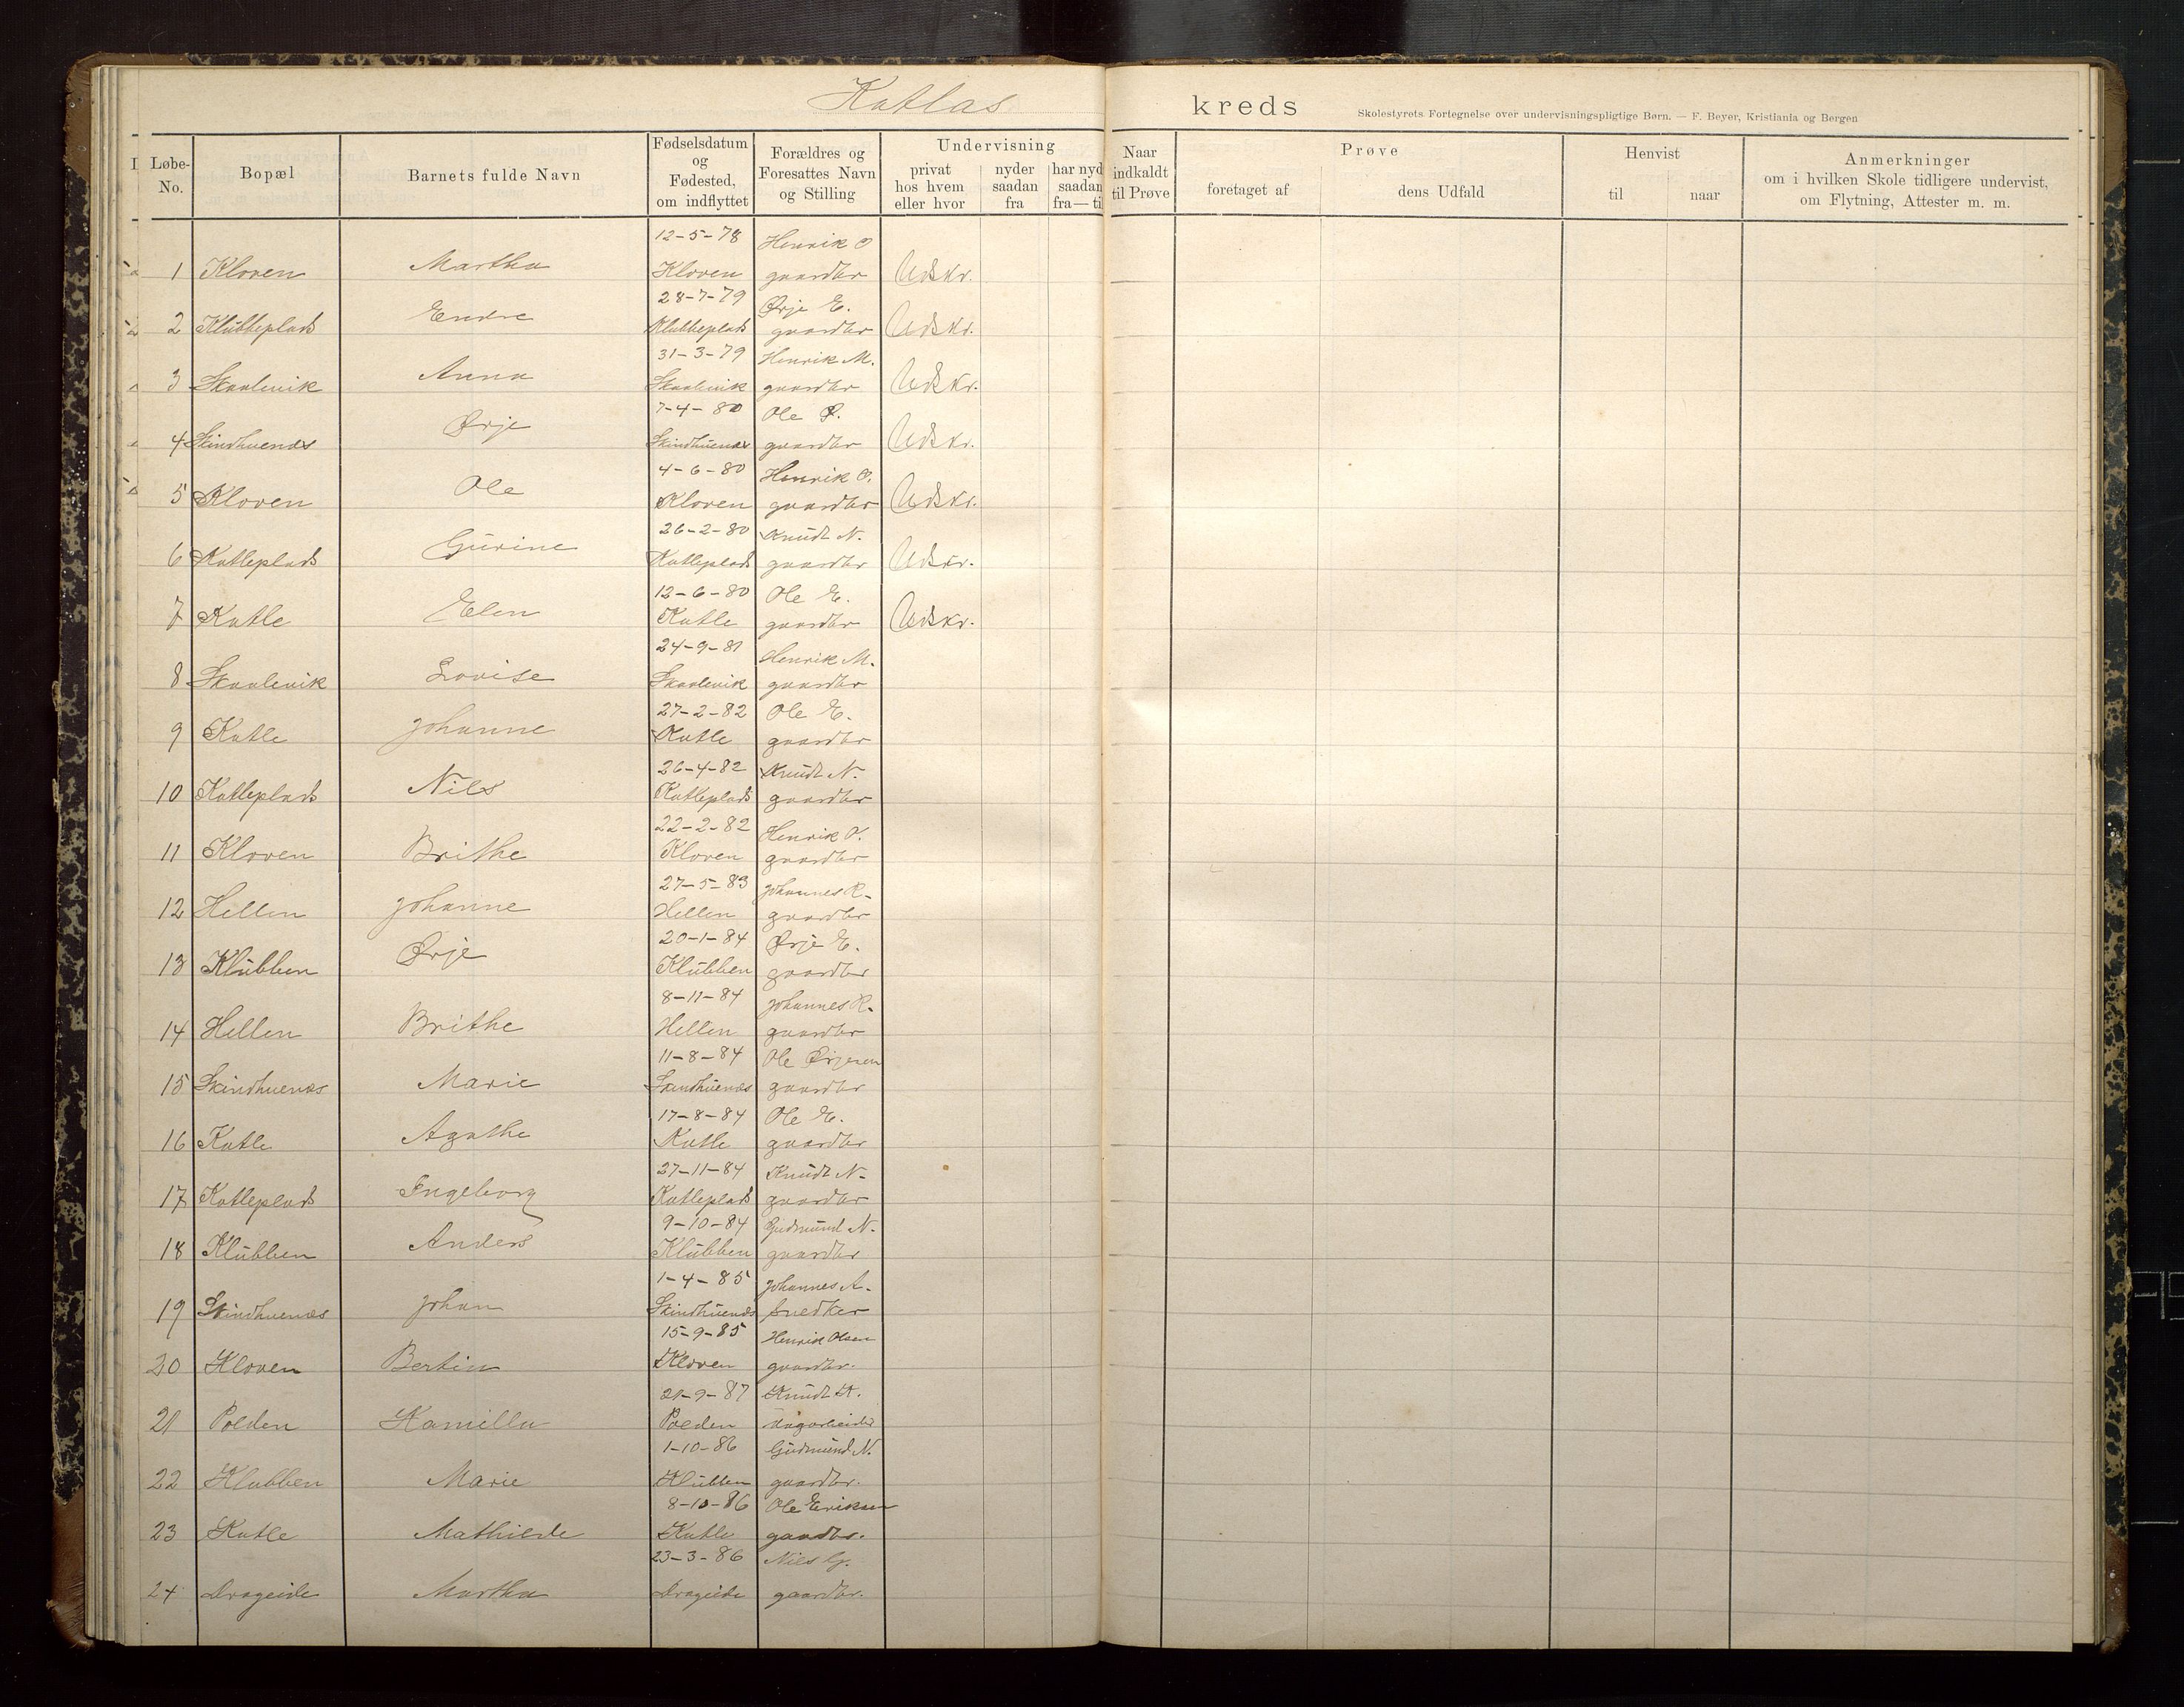 Katlas kreds Skolestyrets Fortegnelse over undervisningspligtige Børn. — F. Beyer, Kristiania og Bergen
Løbe-No. Bopæl Barnets fulde Navn Fødselsdatum og Fødested, om indflyttet Forældres og Foresattes Navn og Stilling Undervisning privat hos hvem eller hvor nyder saadan fra har nyd saadan fra — ti Naar indkaldt til Prøve Prøve foretaget af dens Udfald Henvist til naar Anmerkninger om i hvilken Skole tidligere undervist, om Flytning, Attester m. m.
12-5-78 Henrik O
1 Kloven Martha Kloven gaardbr Udskr.
28-7-79 Ørje E.
2 Klubbeplads Endre Klubbeplads gaardbr Udskr.
31-3-79 Henrik M.
3 Skaalevik Anna Skaalevik gaardbr Udskr.
7-4-80 Ole Ø.
4 Skindhuenæs Ørje Skindhuenæs gaardbr Udskr.
4-6-80 Henrik O.
5 Kloven Ole Kloven gaardbr Udskr.
26-2-80 Knudt N.
6 Katleplads Gurine Katleplads gaardbr Udskr.
12-6-80 Ole E.
7 Katle Elen Katle gaardbr Udskr.
24-9-81 Henrik M.
8 Skaalevik Lovise Skaalevik gaardbr
27-2-82 Ole E.
9 Katle Johanne Katle gaardbr
26-4-82 Knudt N.
10 Katleplads Nils Katleplads gaardbr
22-2-82 Henrik O.
11 Kloven Brithe Kloven gaardbr
27-5-83 Johannes R.
12 Hellen Johanne Hellen gaardbr
20-1-84 Ørje E.
13 Klubben Ørje Klubben gaardbr
8-11-84 Johannes R.
14 Hellen Brithe Hellen gaardbr
11-8-84 Ole Ørjesen
15 Skindhuenæs Marie Skindhuenæs gaardbr
17-8-84 Ole E.
16 Katle Agathe Katle gaardbr
27-11-84 Knudt N.
17 Katleplads Ingeborg Katleplads gaardbr
9-10-84 Gudmund N.
18 Klubben Anders Klubben gaardbr
1-4-85 Johannes A.
19 Skindhuenæs Johan Skindhuenæs snedker
15-9-85 Henrik Olsen
20 Kloven Bertin Kloven gaardbr.
21-9-87 Knudt K.
21 Polden Kamilla Polden dagarbeider
1-10-86 Gudmund N.
22 Klubben Marie Klubben gaardbr.
8-10-86 Ole Eriksen
23 Katle Mathilde Katle gaardbr.
23-3-86 Nils G.
24 Drageide Martha Drageide gaardbr.